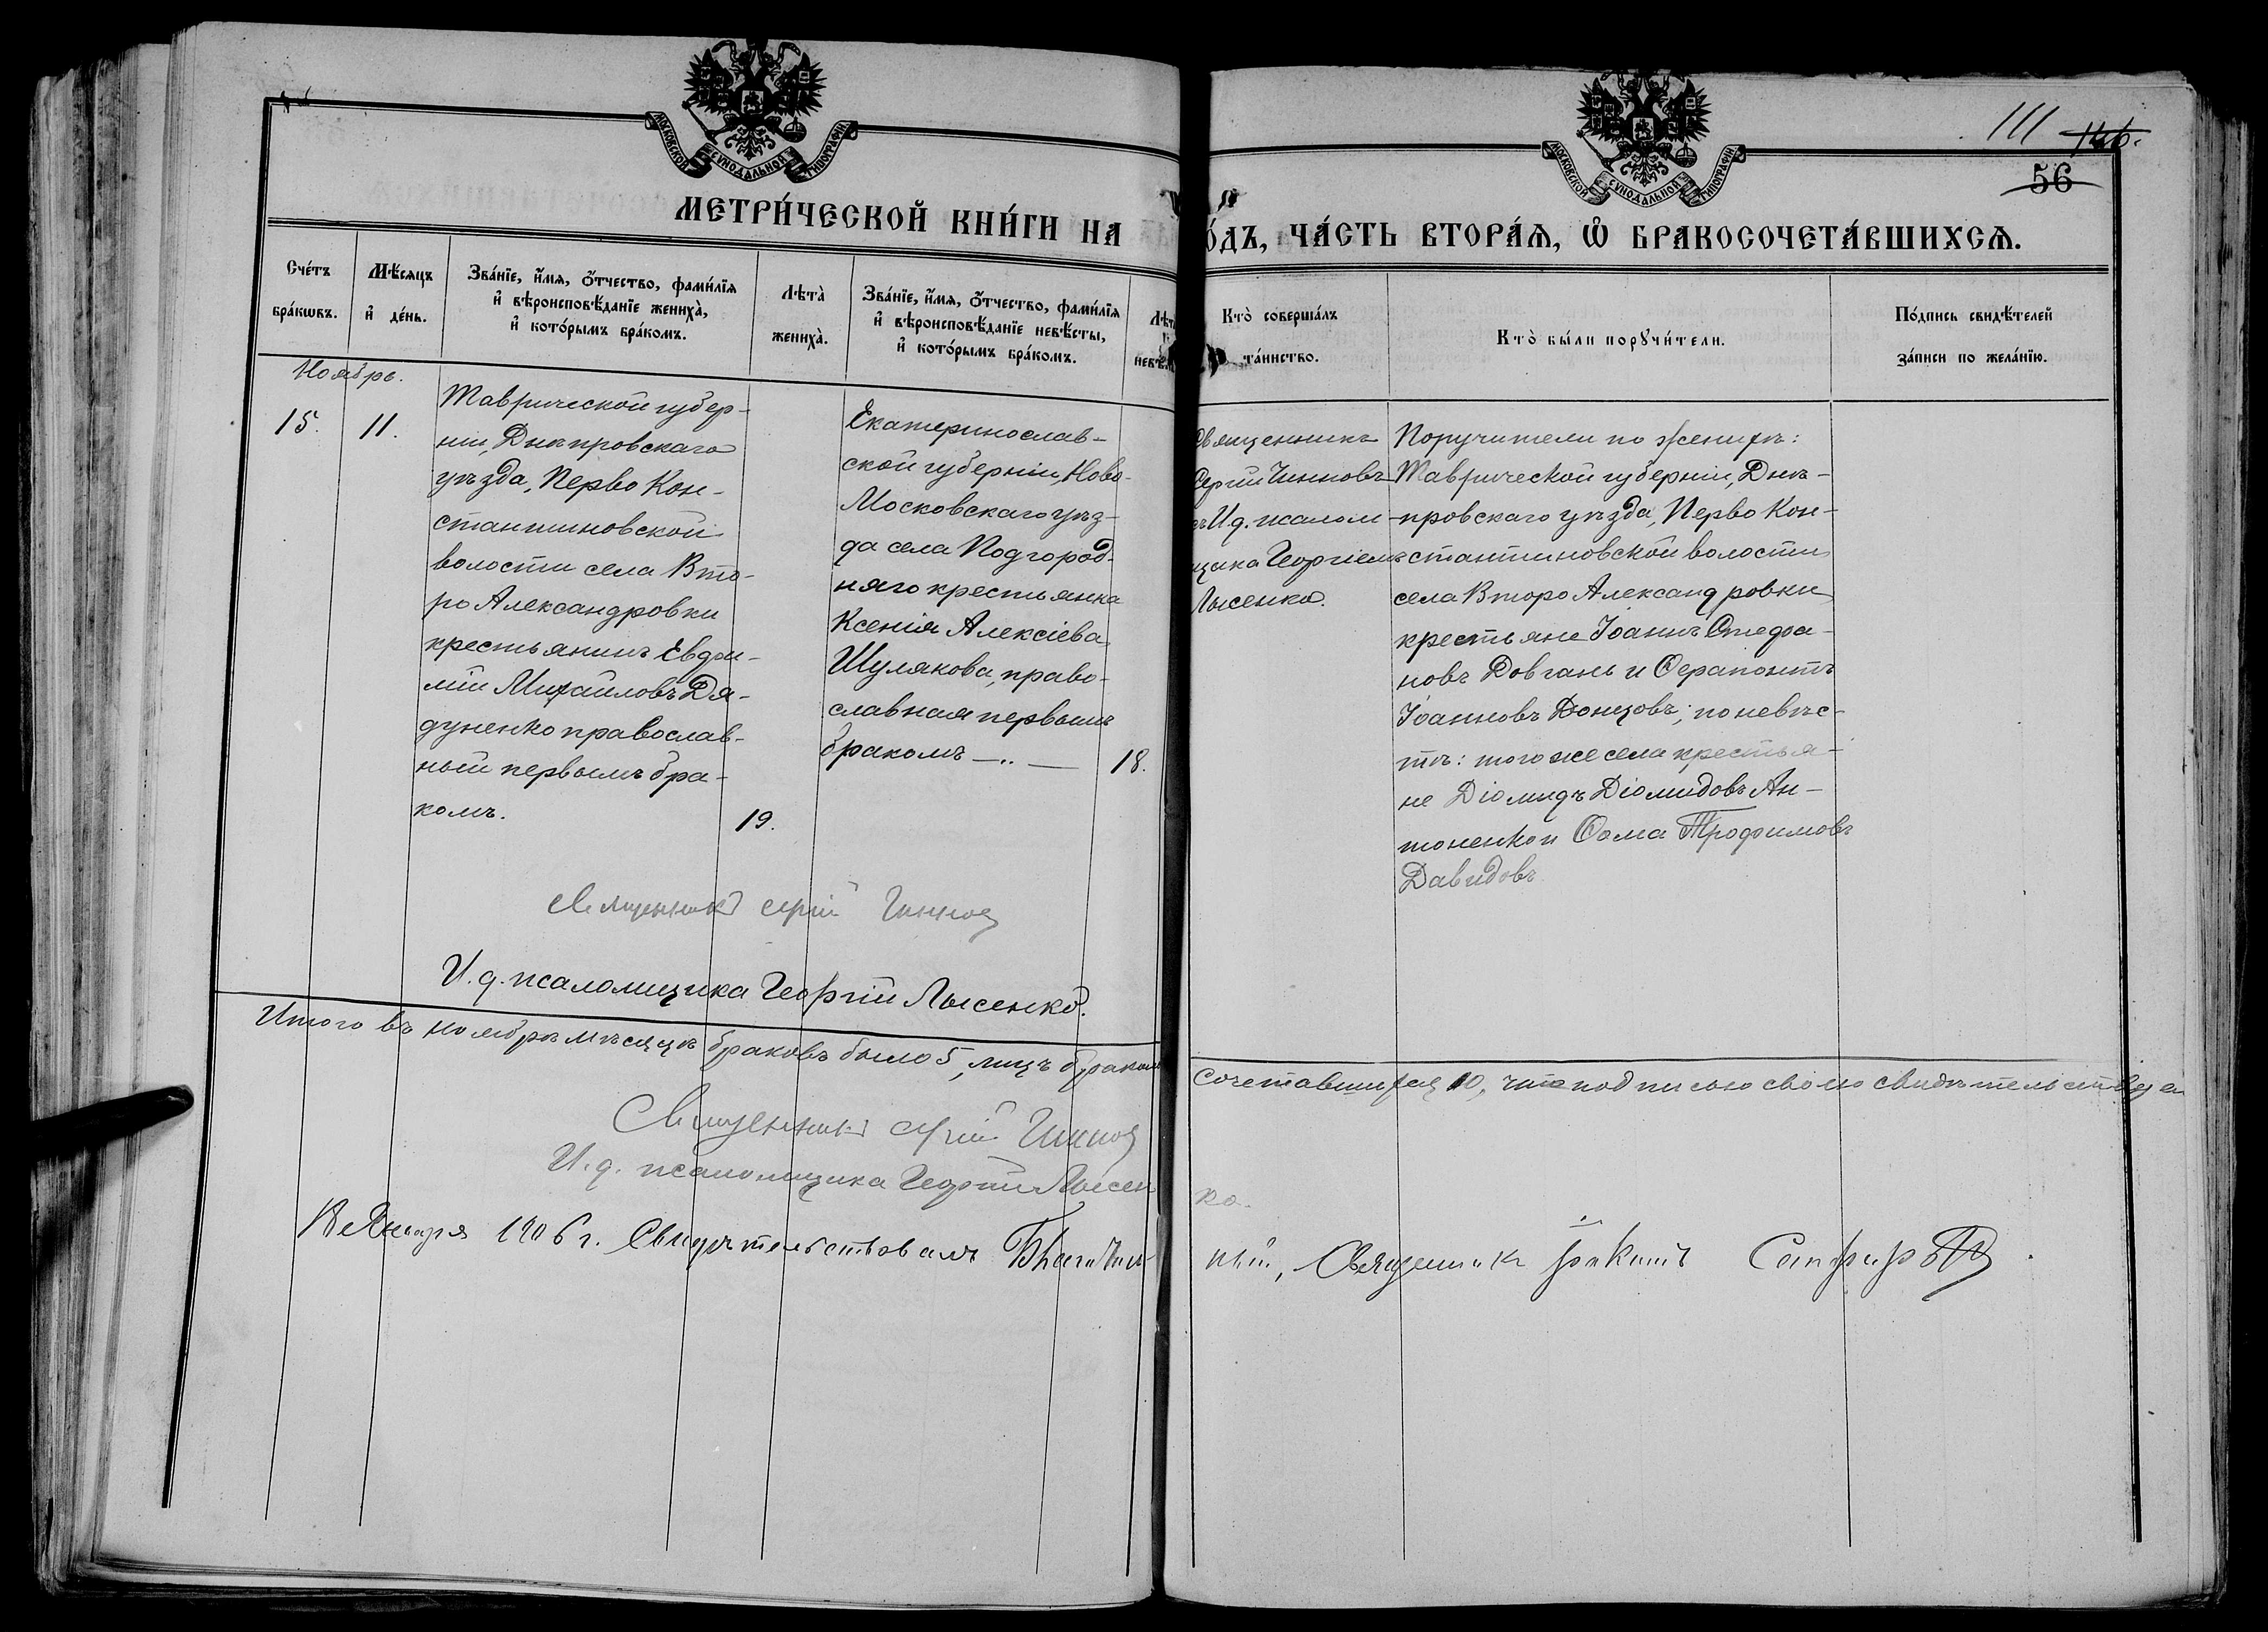 МОСКОВСКОЙ СУНОДАЛЬНОЙ ТИПОГРАФІИ
МОСКОВСКОЙ СУНОДАЛЬНОЙ ТИПОГРАФІИ
111 146.
56
МЕТРИ́ЧЕСКОЙ КНИ́ГИ НА
О́ДЪ, ЧА́СТЬ ВТОРА́Я, Ѡ҆ БРАКОСОЧЕТА́ВШИХСѦ.
Сче́тъ
бра́кѡвъ.
Мѣ́сяцъ
и҆ де́нь.
Зва́нїе, и҆́мя, ѻ҆́тчество, фами́лїя
и҆ вѣроисповѣ́данїе жениха̀,
и҆ кото́рымъ бра́комъ.
Лѣта̀
жениха̀.
Зва́нїе, и҆́мя, ѻ҆́тчество, фами́лїя
и҆ вѣроисповѣ́данїе невѣ́сты,
и҆ кото́рымъ бра́комъ.
Кто̀ соверша́лъ
та́инство.
Кто̀ бы́ли порꙋчи́тели.
По́дпись свидѣ́телей
за́писи по жела́нїю.
Ноябрь.
15.
11.
Таврической губер-
ніи, Днѣпровскаго
уѣзда, Перво Кон-
стантиновской
волости села Вто-
ро Александровки
крестьянинъ Евѳи-
мій Михаиловъ Дя-
дуненко православ-
ный первымъ бра-
комъ.
19.
Екатеринослав-
ской губерніи, Ново-
Московскаго уѣз-
да села Подгород-
няго крестьянка
Ксенія Алексіева
Шулякова, право-
славная первымъ
бракомъ —..—
18.
Священникъ
Сергій Чинновъ
съ И д. псалом-
щика Георгіемъ
Лысенко.
Поручители по женихѣ:
Таврической губерніи, Днѣ-
провскаго уѣзда, Перво Кон-
стантиновской волости
села Второ Александровки
крестьяне Іоаннъ Стефа-
новъ Довгань и Серапонтъ
Іоанновъ Донцовъ; по невѣс-
тѣ: того же села крестья-
не Діомидъ Діомидовъ Ан-
тоненко и Ѳома Трофимовъ
Давидовъ
Священникъ Сергій Чинновъ
И. д. псаломщика Георгій Лысенко.
Итого въ ноябрѣ мѣсяцѣ браковъ было 5, лицъ бракомъ
сочетавшихся 10, что подписью своею свидѣтельствуемъ
Священникъ Сергій Чинновъ
И. д. псаломщика Георгій Лысен
ко.
Января 1906 г. Свидѣтельствовалъ Благочин-
ный, Священникъ